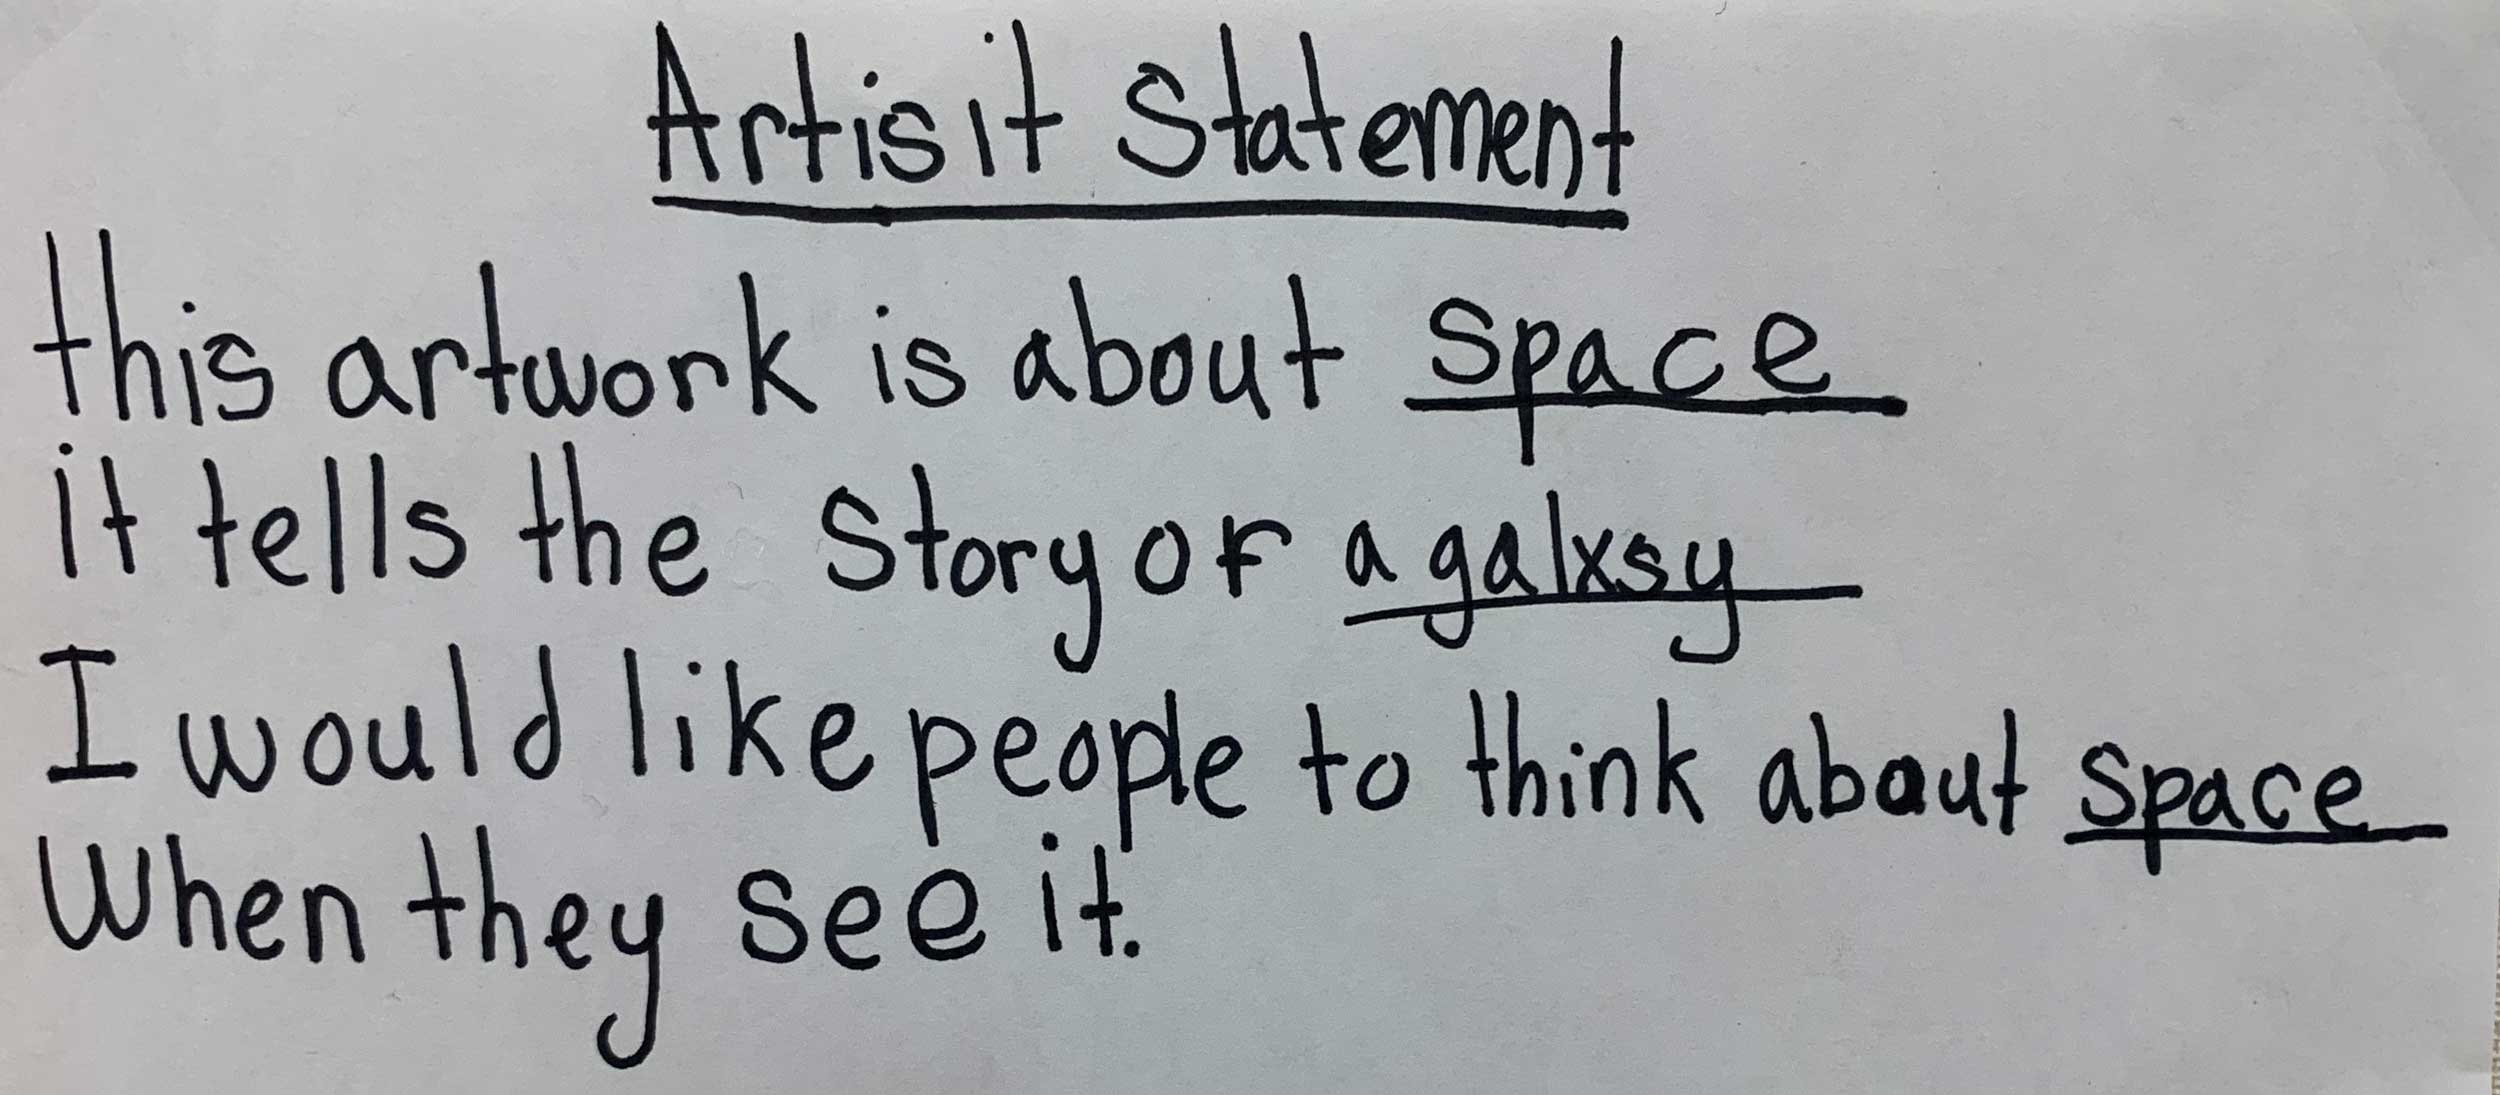 Artisit Statement
this artwork is about space
it tells the Story of a galxsy
I would like people to think about space
When they see it.